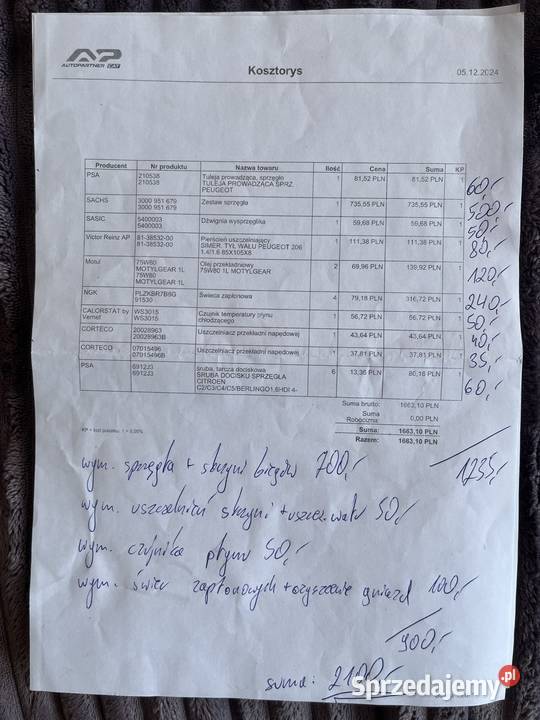 AP
AUTOPARTNER CAT
Kosztorys
05.12.2024
Producent Nr produktu Nazwa towaru Ilość Cena Suma KP
PSA 210538 Tuleja prowadząca, sprzęgło 1 81,52 PLN 81,52 PLN 1 60,-
210538 TULEJA PROWADZACA SPRZ.
PEUGEOT
SACHS 3000 951 679 Zestaw sprzęgła 1 735,55 PLN 735,55 PLN 1 500,-
3000 951 679
SASIC 5400003 Dźwignia wysprzęglika 1 59,68 PLN 59,68 PLN 1 50,-
5400003
Victor Reinz AP 81-38532-00 Pierścień uszczelniający 1 111,38 PLN 111,38 PLN 1 80,-
81-38532-00 SIMER. TYŁ WAŁU PEUGEOT 206
1.4/1.6 85X105X8
Motul 75W80 Olej przekładniowy 2 69,96 PLN 139,92 PLN 1 120,-
MOTYLGEAR 1L 75W80 1L MOTYLGEAR
75W80
MOTYLGEAR 1L
NGK PLZKBR7B8G Świeca zapłonowa 4 79,18 PLN 316,72 PLN 1 240,-
91530
CALORSTAT by WS3015 Czujnik temperatury płynu 1 56,72 PLN 56,72 PLN 1 50,-
Vernet WS3015 chłodzącego
CORTECO 20028963 Uszczelniacz przekładni napędowej 1 43,64 PLN 43,64 PLN 1 40,-
20028963B
CORTECO 07015496 Uszczelniacz przekładni napędowej 1 37,81 PLN 37,81 PLN 1 35,-
07015496B
PSA 6912J3 śruba, tarcza dociskowa 6 13,36 PLN 80,16 PLN 1 60,-
6912J3 SRUBA DOCISKU SPRZEGLA
CITROEN
C2/C3/C4/C5/BERLINGO1.6HDI 4-
Suma brutto: 1663,10 PLN
Suma 0,00 PLN
Robocizna:
Suma: 1663,10 PLN
Razem: 1663,10 PLN
1235,-
wym. sprzęgła + skrzyni biegów 700,-
wym. uszczelnień skrzyni + uszcz. wału 50,-
wym. czujnika płynu 50,-
wym. świec zapłonowych + czyszczenie gniazd 100,-
900,-
suma: 2100,-
Sprzedajemy.pl